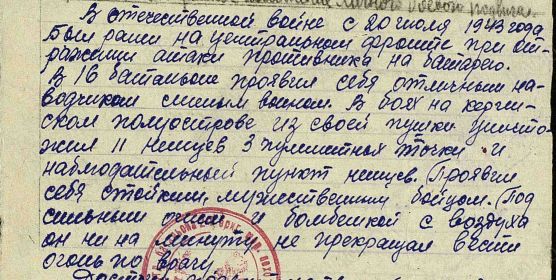 личного боевого подвига
В отечественной войне с 20 июля 1943 года
был ранен на центральном фронте при от-
ражении атаки противника на батарею.
В 16 батальоне проявил себя отличным на-
водчиком смелым воином. В боях на керчен-
ском полуострове из своей пушки уничто-
жил 11 немцев 3 пулеметных точки и
наблюдательный пункт немцев. Проявил
себя стойким, мужественным бойцом. Под
сильным огнем и бомбежкой с воздуха
он ни на минуту не прекращал вести
огонь по врагу.